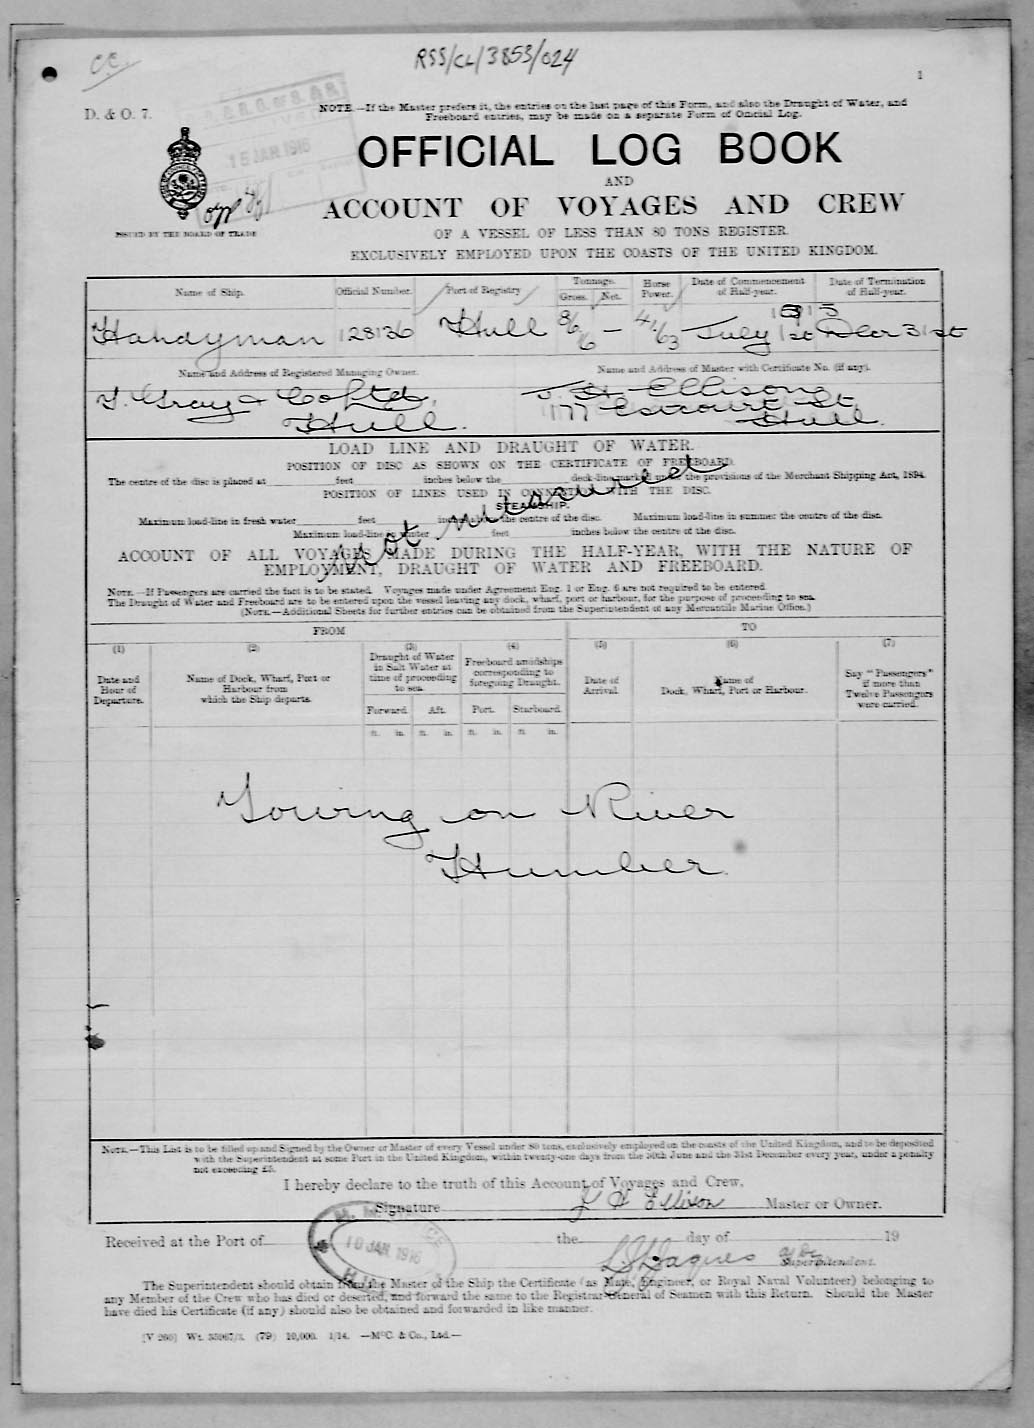 RSS/CL/3853/024
CC.
1
D. & O. 7.
NOTE.—If the Master prefers it, the entries on the last page of this Form, and also the Draught of Water, and
Freeboard entries, may be made on a separate Form of Official Log.
15 JAN. 1916
OFFICIAL LOG BOOK
AND
ACCOUNT OF VOYAGES AND CREW
ISSUED BY THE BOARD OF TRADE
OF A VESSEL OF LESS THAN 80 TONS REGISTER.
EXCLUSIVELY EMPLOYED UPON THE COASTS OF THE UNITED KINGDOM.
Name of Ship. Official Number. Port of Registry Tonnage. Gross. Net. Horse Power. Date of Commencement of Half-year. Date of Termination of Half-year.
1915
Handyman 128136 Hull — July 1st Decr 31st
Name and Address of Registered Managing Owner. Name and Address of Master with Certificate No. (if any).
T. Gray & Co Ltd, J. H Ellison
Hull. 177 Estcourt St
Hull.
LOAD LINE AND DRAUGHT OF WATER.
POSITION OF DISC AS SHOWN ON THE CERTIFICATE OF FREEBOARD.
The centre of the disc is placed at feet inches below the deck-line marked under the provisions of the Merchant Shipping Act, 1894.
POSITION OF LINES USED IN CONNECTION WITH THE DISC.
STEAMSHIP.
Maximum load-line in fresh water feet inches above the centre of the disc. Maximum load-line in summer the centre of the disc.
Maximum load-line in winter feet inches below the centre of the disc.
Not measured
ACCOUNT OF ALL VOYAGES MADE DURING THE HALF-YEAR, WITH THE NATURE OF
EMPLOYMENT, DRAUGHT OF WATER AND FREEBOARD.
NOTE.—If Passengers are carried the fact is to be stated. Voyages made under Agreement Eng. 1 or Eng. 6 are not required to be entered.
The Draught of Water and Freeboard are to be entered upon the vessel leaving any dock, wharf, port or harbour, for the purpose of proceeding to sea.
(NOTE.—Additional Sheets for further entries can be obtained from the Superintendent of any Mercantile Marine Office.)
FROM TO
(1) (2) (3) (4) (5) (6) (7)
Date and Hour of Departure. Name of Dock, Wharf, Port or Harbour from which the Ship departs. Draught of Water in Salt Water at time of proceeding to sea. Freeboard amidships corresponding to foregoing Draught. Date of Arrival. Name of Dock, Wharf, Port or Harbour. Say "Passengers" if more than Twelve Passengers were carried.
Forward. Aft. Port. Starboard.
ft. in. ft. in. ft. in. ft. in.
Towing on River
Humber.
NOTE.—This List is to be filled up and Signed by the Owner or Master of every Vessel under 80 tons, exclusively employed on the coasts of the United Kingdom, and to be deposited
with the Superintendent at some Port in the United Kingdom, within twenty-one days from the 30th June and the 31st December every year, under a penalty
not exceeding £5.
I hereby declare to the truth of this Account of Voyages and Crew,
Signature J H Ellison Master or Owner.
Received at the Port of the day of 19
10 JAN 1916
Superintendent.
The Superintendent should obtain from the Master of the Ship the Certificate (as Mate, Engineer, or Royal Naval Volunteer) belonging to
any Member of the Crew who has died or deserted, and forward the same to the Registrar General of Seamen with this Return. Should the Master
have died his Certificate (if any) should also be obtained and forwarded in like manner.
[V 260] Wt. 35067/3. (79) 10,000. 1/14. —McC. & Co., Ltd.—